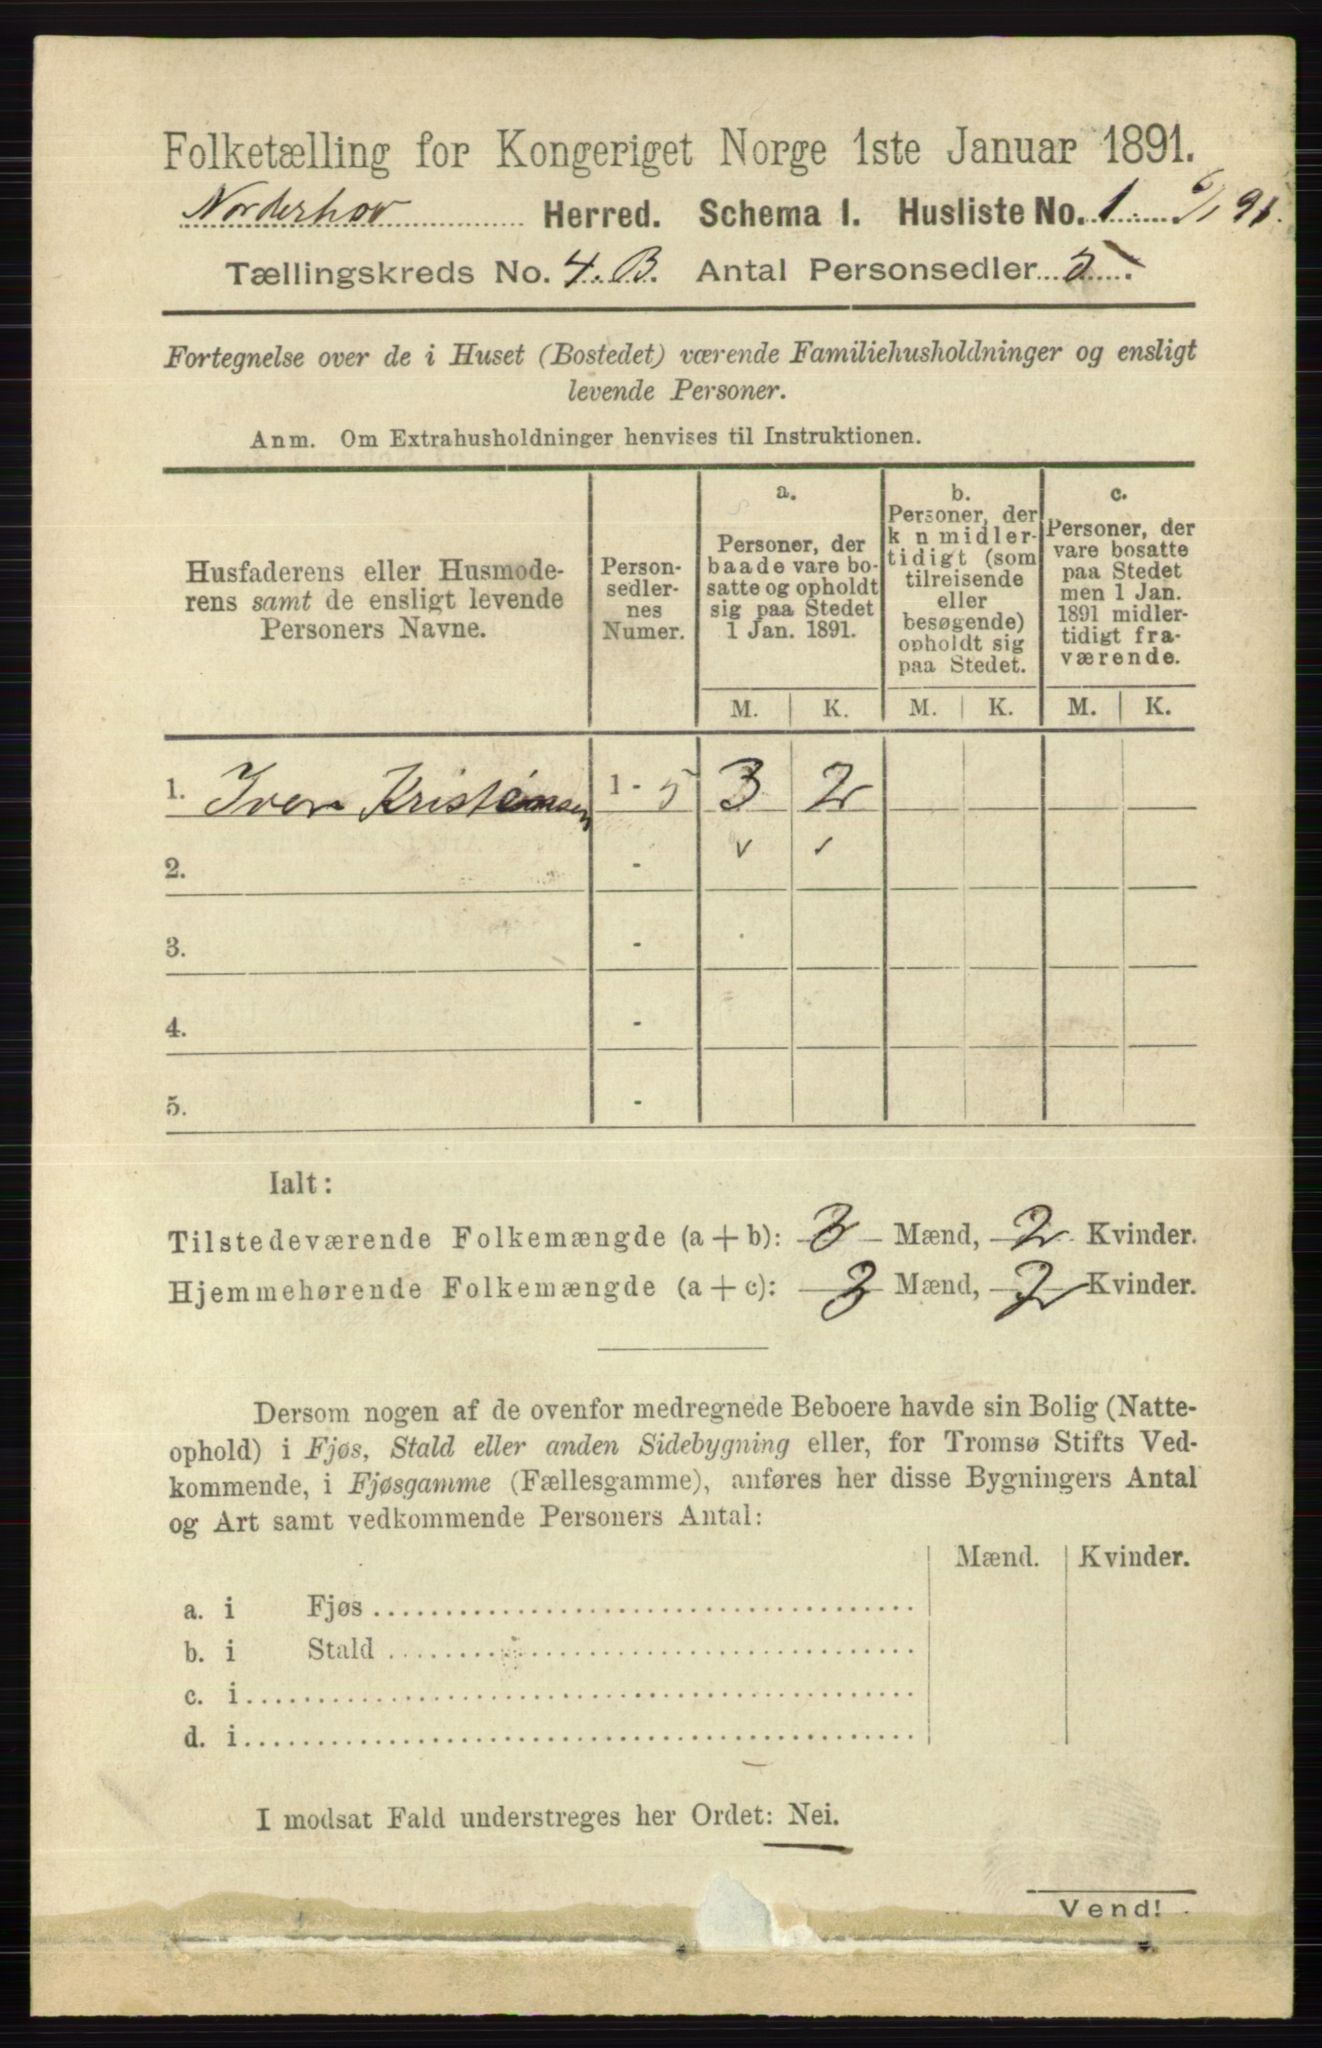 Folketælling for Kongeriget Norge 1ste Januar 1891.
Norderhov Herred. Schema I. Husliste No. 1 6/1 91.
Tællingskreds No. 4. B. Antal Personsedler 5.
Fortegnelse over de i Huset (Bostedet) værende Familiehusholdninger og ensligt
levende Personer.
Anm. Om Extrahusholdninger henvises til Instruktionen.
Husfaderens eller Husmode-
rens samt de ensligt levende
Personers Navne.
Person-
sedler-
nes
Numer.
a.
Personer, der
baade vare bo-
satte og opholdt
sig paa Stedet
1 Jan. 1891.
b.
Personer, der
k n midler-
tidigt (som
tilreisende
eller
besøgende)
opholdt sig
paa Stedet.
c.
Personer, der
vare bosatte
paa Stedet
men 1 Jan.
1891 midler-
tidigt fra-
værende.
M. K. M. K. M. K.
1. Iver Kristensen 1 - 5 3 2
2. -
3. -
4. -
5. -
Ialt:
Tilstedeværende Folkemængde (a + b): 3 Mænd, 2 Kvinder.
Hjemmehørende Folkemængde (a + c): 3 Mænd, 2 Kvinder.
Dersom nogen af de ovenfor medregnede Beboere havde sin Bolig (Natte-
ophold) i Fjøs, Stald eller anden Sidebygning eller, for Tromsø Stifts Ved-
kommende, i Fjøsgamme (Fællesgamme), anføres her disse Bygningers Antal
og Art samt vedkommende Personers Antal:
Mænd. Kvinder.
a. i Fjøs
b. i Stald
c. i
d. i
I modsat Fald understreges her Ordet: Nei.
Vend!